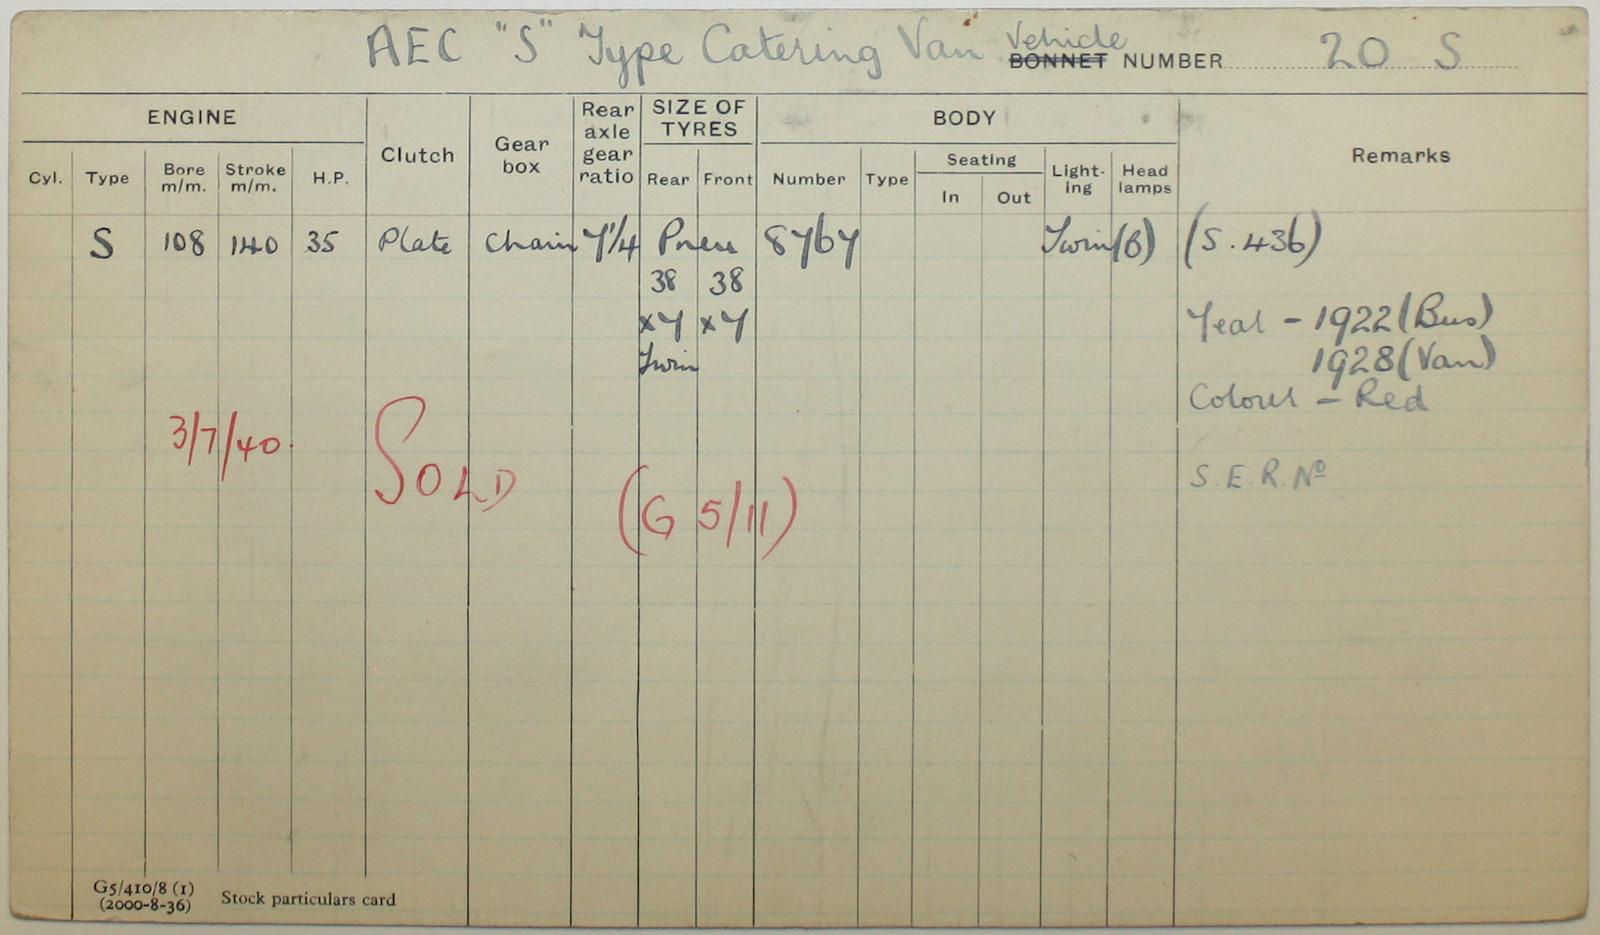 AEC "S" Type Catering Van Vehicle
BONNET NUMBER 20 S
ENGINE
Clutch
Gear box
Rear axle gear ratio
SIZE OF TYRES
BODY
Remarks
Cyl.
Type
Bore m/m.
Stroke m/m.
H.P.
Rear
Front
Number
Type
Seating
In
Out
Light-ing
Head lamps
S 108 140 35 Plate Chain 7 1/4 Pneu 8767 Twin (6) (S.436)
38 38
x7 x7
Twin
Year - 1922 (Bus)
1928 (Van)
Colour - Red
3/7/40. SOLD (G 5/11)
S.E.R. No
G5/410/8 (1)
(2000-8-36)
Stock particulars card